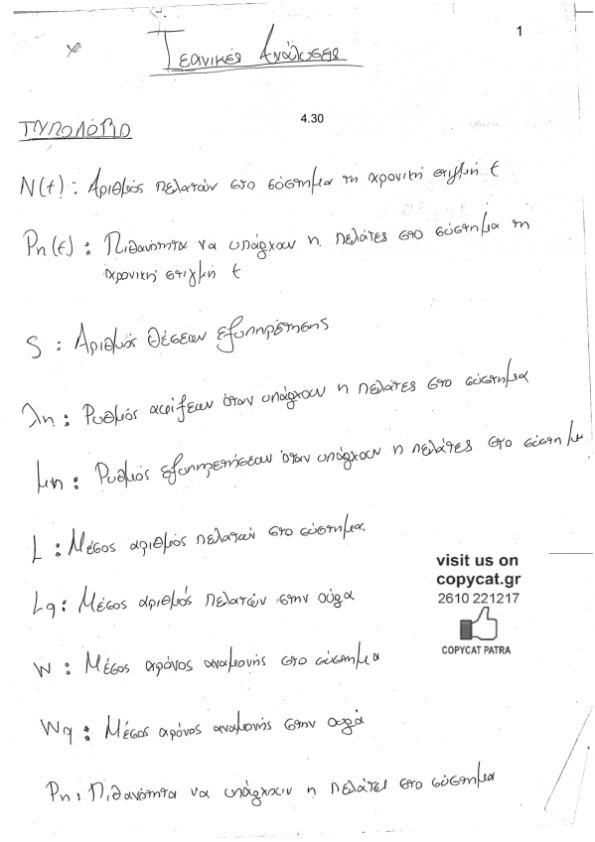 1
Τεχνικές Ανάλυσης
4.30
ΤΥΠΟΛΟΓΙΟ
N(t) : Αριθμός πελατών στο σύστημα τη χρονική στιγμή t
Pn(t) : Πιθανότητα να υπάρχουν n πελάτες στο σύστημα τη
χρονική στιγμή t
S : Αριθμός θέσεων εξυπηρέτησης
λn : Ρυθμός αφίξεων όταν υπάρχουν n πελάτες στο σύστημα
μn : Ρυθμός εξυπηρετήσεων όταν υπάρχουν n πελάτες στο σύστημα
L : Μέσος αριθμός πελατών στο σύστημα
Lq : Μέσος αριθμός πελατών στην ουρά
W : Μέσος χρόνος αναμονής στο σύστημα
Wq : Μέσος χρόνος αναμονής στην ουρά
Pn : Πιθανότητα να υπάρχουν n πελάτες στο σύστημα
visit us on
copycat.gr
2610 221217
COPYCAT PATRA